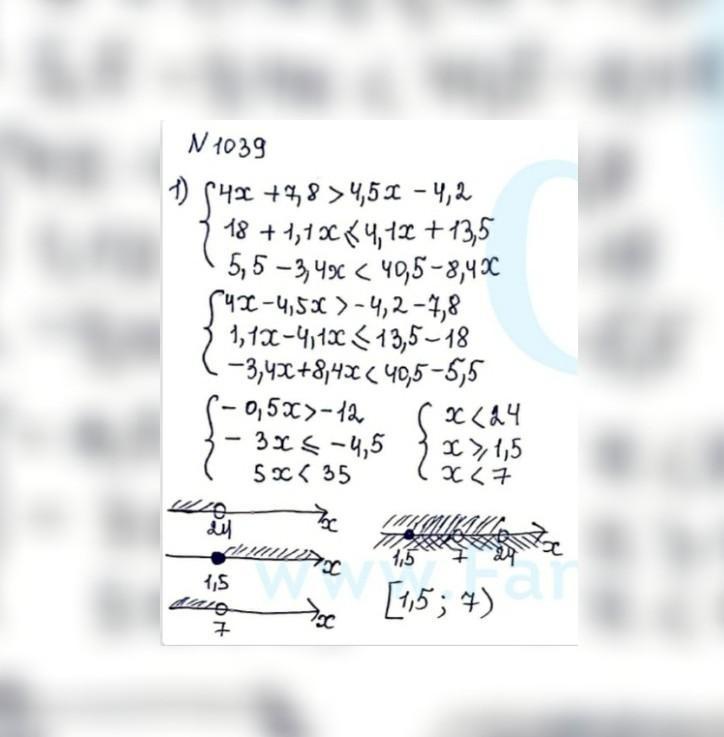 N 1039
1) { 4x + 7,8 > 4,5x - 4,2
18 + 1,1x ⩽ 4,1x + 13,5
5,5 - 3,4x < 40,5 - 8,4x
{ 4x - 4,5x > -4,2 - 7,8
1,1x - 4,1x ⩽ 13,5 - 18
-3,4x + 8,4x < 40,5 - 5,5
{ -0,5x > -12 { x < 24
-3x ⩽ -4,5 x ⩾ 1,5
5x < 35 x < 7
24 x
1,5 x
7 x
1,5 7 24 x
[1,5 ; 7)
www.Fam